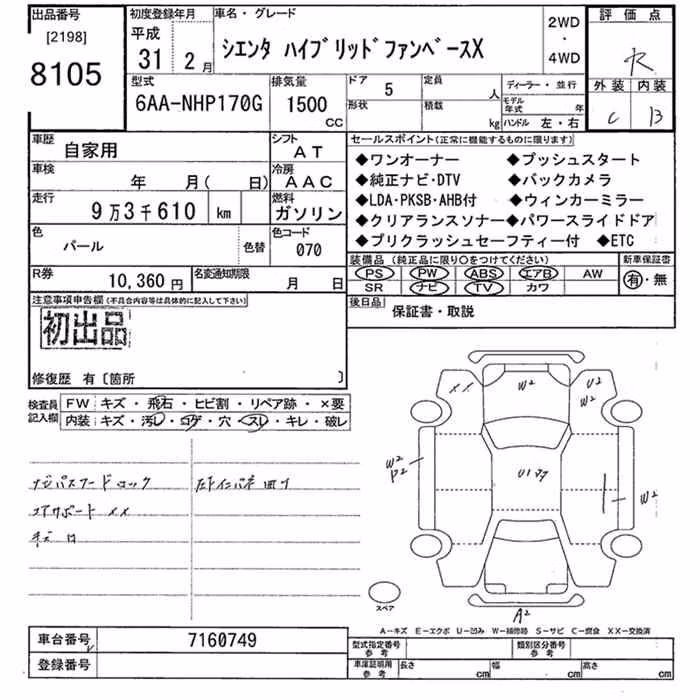 出品番号
[2198]
8105
初度登録年月
平成
31 2月
車名・グレード
シエンタ ハイブリッドファンベースX
2WD
・
4WD
評価点
R
外装 内装
C B
型式
6AA-NHP170G
排気量
1500
CC
ドア 5
形状
定員 人
積載 kg
ディーラー・並行
モデル年式 年
ハンドル 左・右
車歴 自家用
シフト AT
車検 年 月( 日)
冷房 AAC
走行 9万3千610 km
燃料 ガソリン
色 パール 色替
色コード 070
R券 10,360円
名変通知期限 月 日
セールスポイント(正常に機能するものに限ります)
◆ワンオーナー ◆プッシュスタート
◆純正ナビ・DTV ◆バックカメラ
◆LDA・PKSB・AHB付 ◆ウィンカーミラー
◆クリアランスソナー◆パワースライドドア
◆プリクラッシュセーフティー付 ◆ETC
装備品(純正品に限り○をつけてください)
PS PW ABS エアB AW
SR ナビ TV カワ
新車保証書
有・無
後日品 保証書・取説
注意事項申告欄(不具合内容等は具体的に記入して下さい)
初出品
修復歴 有〔箇所 〕
検査員記入欄
FW キズ・飛石・ヒビ割・リペア跡・×要
内装 キズ・汚レ・コゲ・穴・スレ・キレ・破レ
ナビパスワードロック
コアサポート XX
XX
W2
U2
W2
W2
P2
W2
A2
スペア
A-キズ E-エクボ U-凹み W-補修跡 S-サビ C-腐食 XX-交換済
車台番号 7160749
登録番号
型式指定番号 参考
類別区分番号 参考
車庫証明用 参考
長さ cm 幅 cm 高さ cm